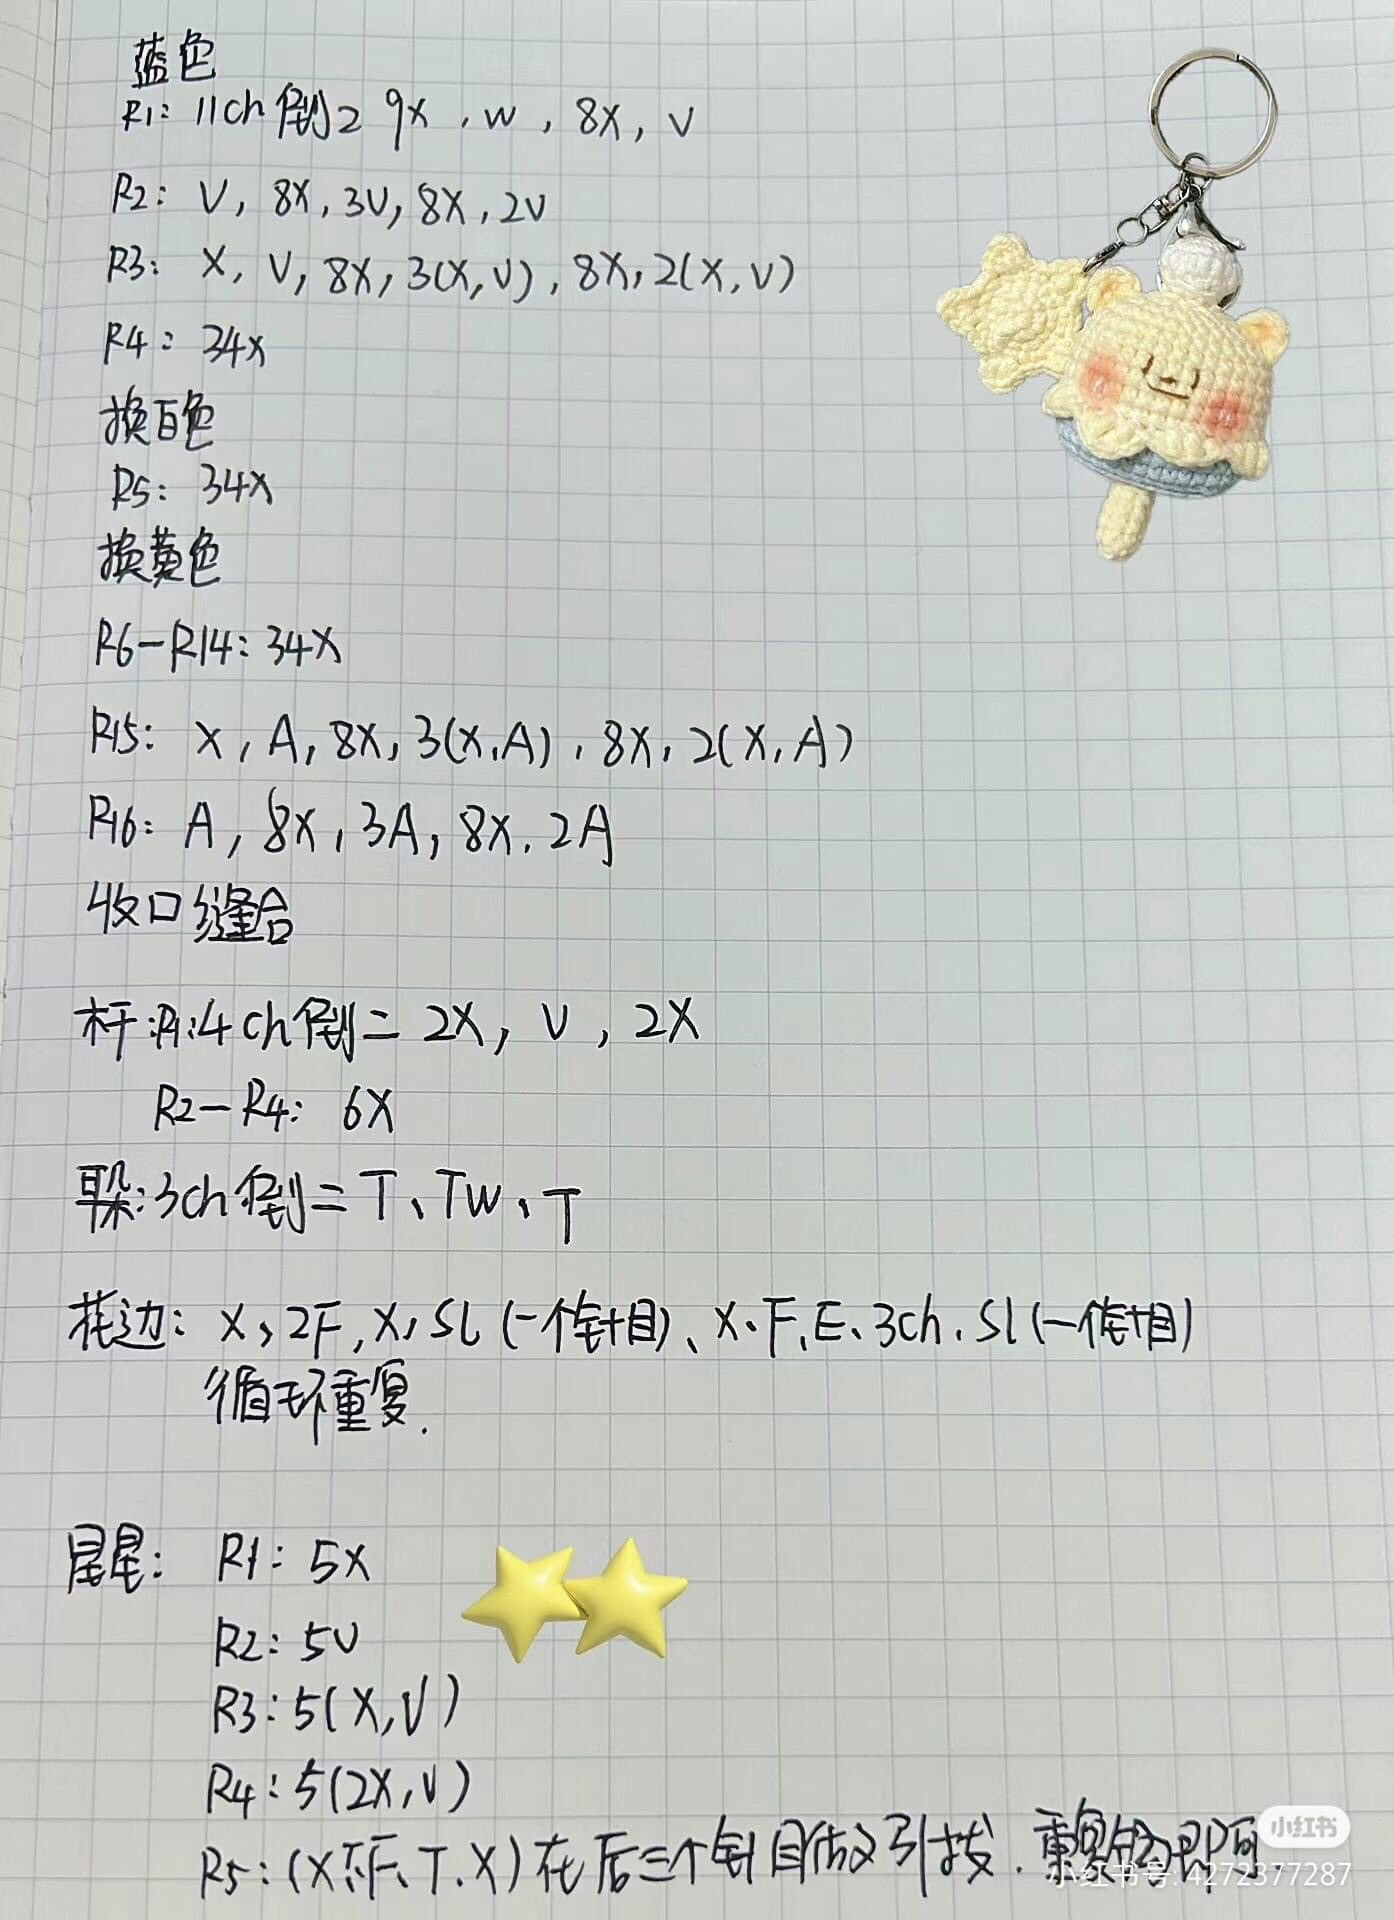 蓝色
R1: 11ch 倒2 9x, w, 8x, v
R2: V, 8X, 3V, 8X, 2V
R3: X, V, 8X, 3(X,V), 8X, 2(X,V)
R4: 34x
换白色
R5: 34x
换黄色
R6-R14: 34X
R15: X, A, 8X, 3(X,A), 8X, 2(X,A)
R16: A, 8X, 3A, 8X, 2A
收口缝合
杆:R1:4ch倒二 2X, V, 2X
R2-R4: 6X
耳朵:3ch倒二 T、TW、T
花边: X, 2F, X, SL (一个针目)、X、F、E、3ch、Sl (一个针目)
循环重复.
星星: R1: 5X
R2: 5V
R3: 5(X,V)
R4: 5(2X,V)
R5: (X T.X) 在后三个针目做引拔. 重复
小红书
小红书号: 4272377287